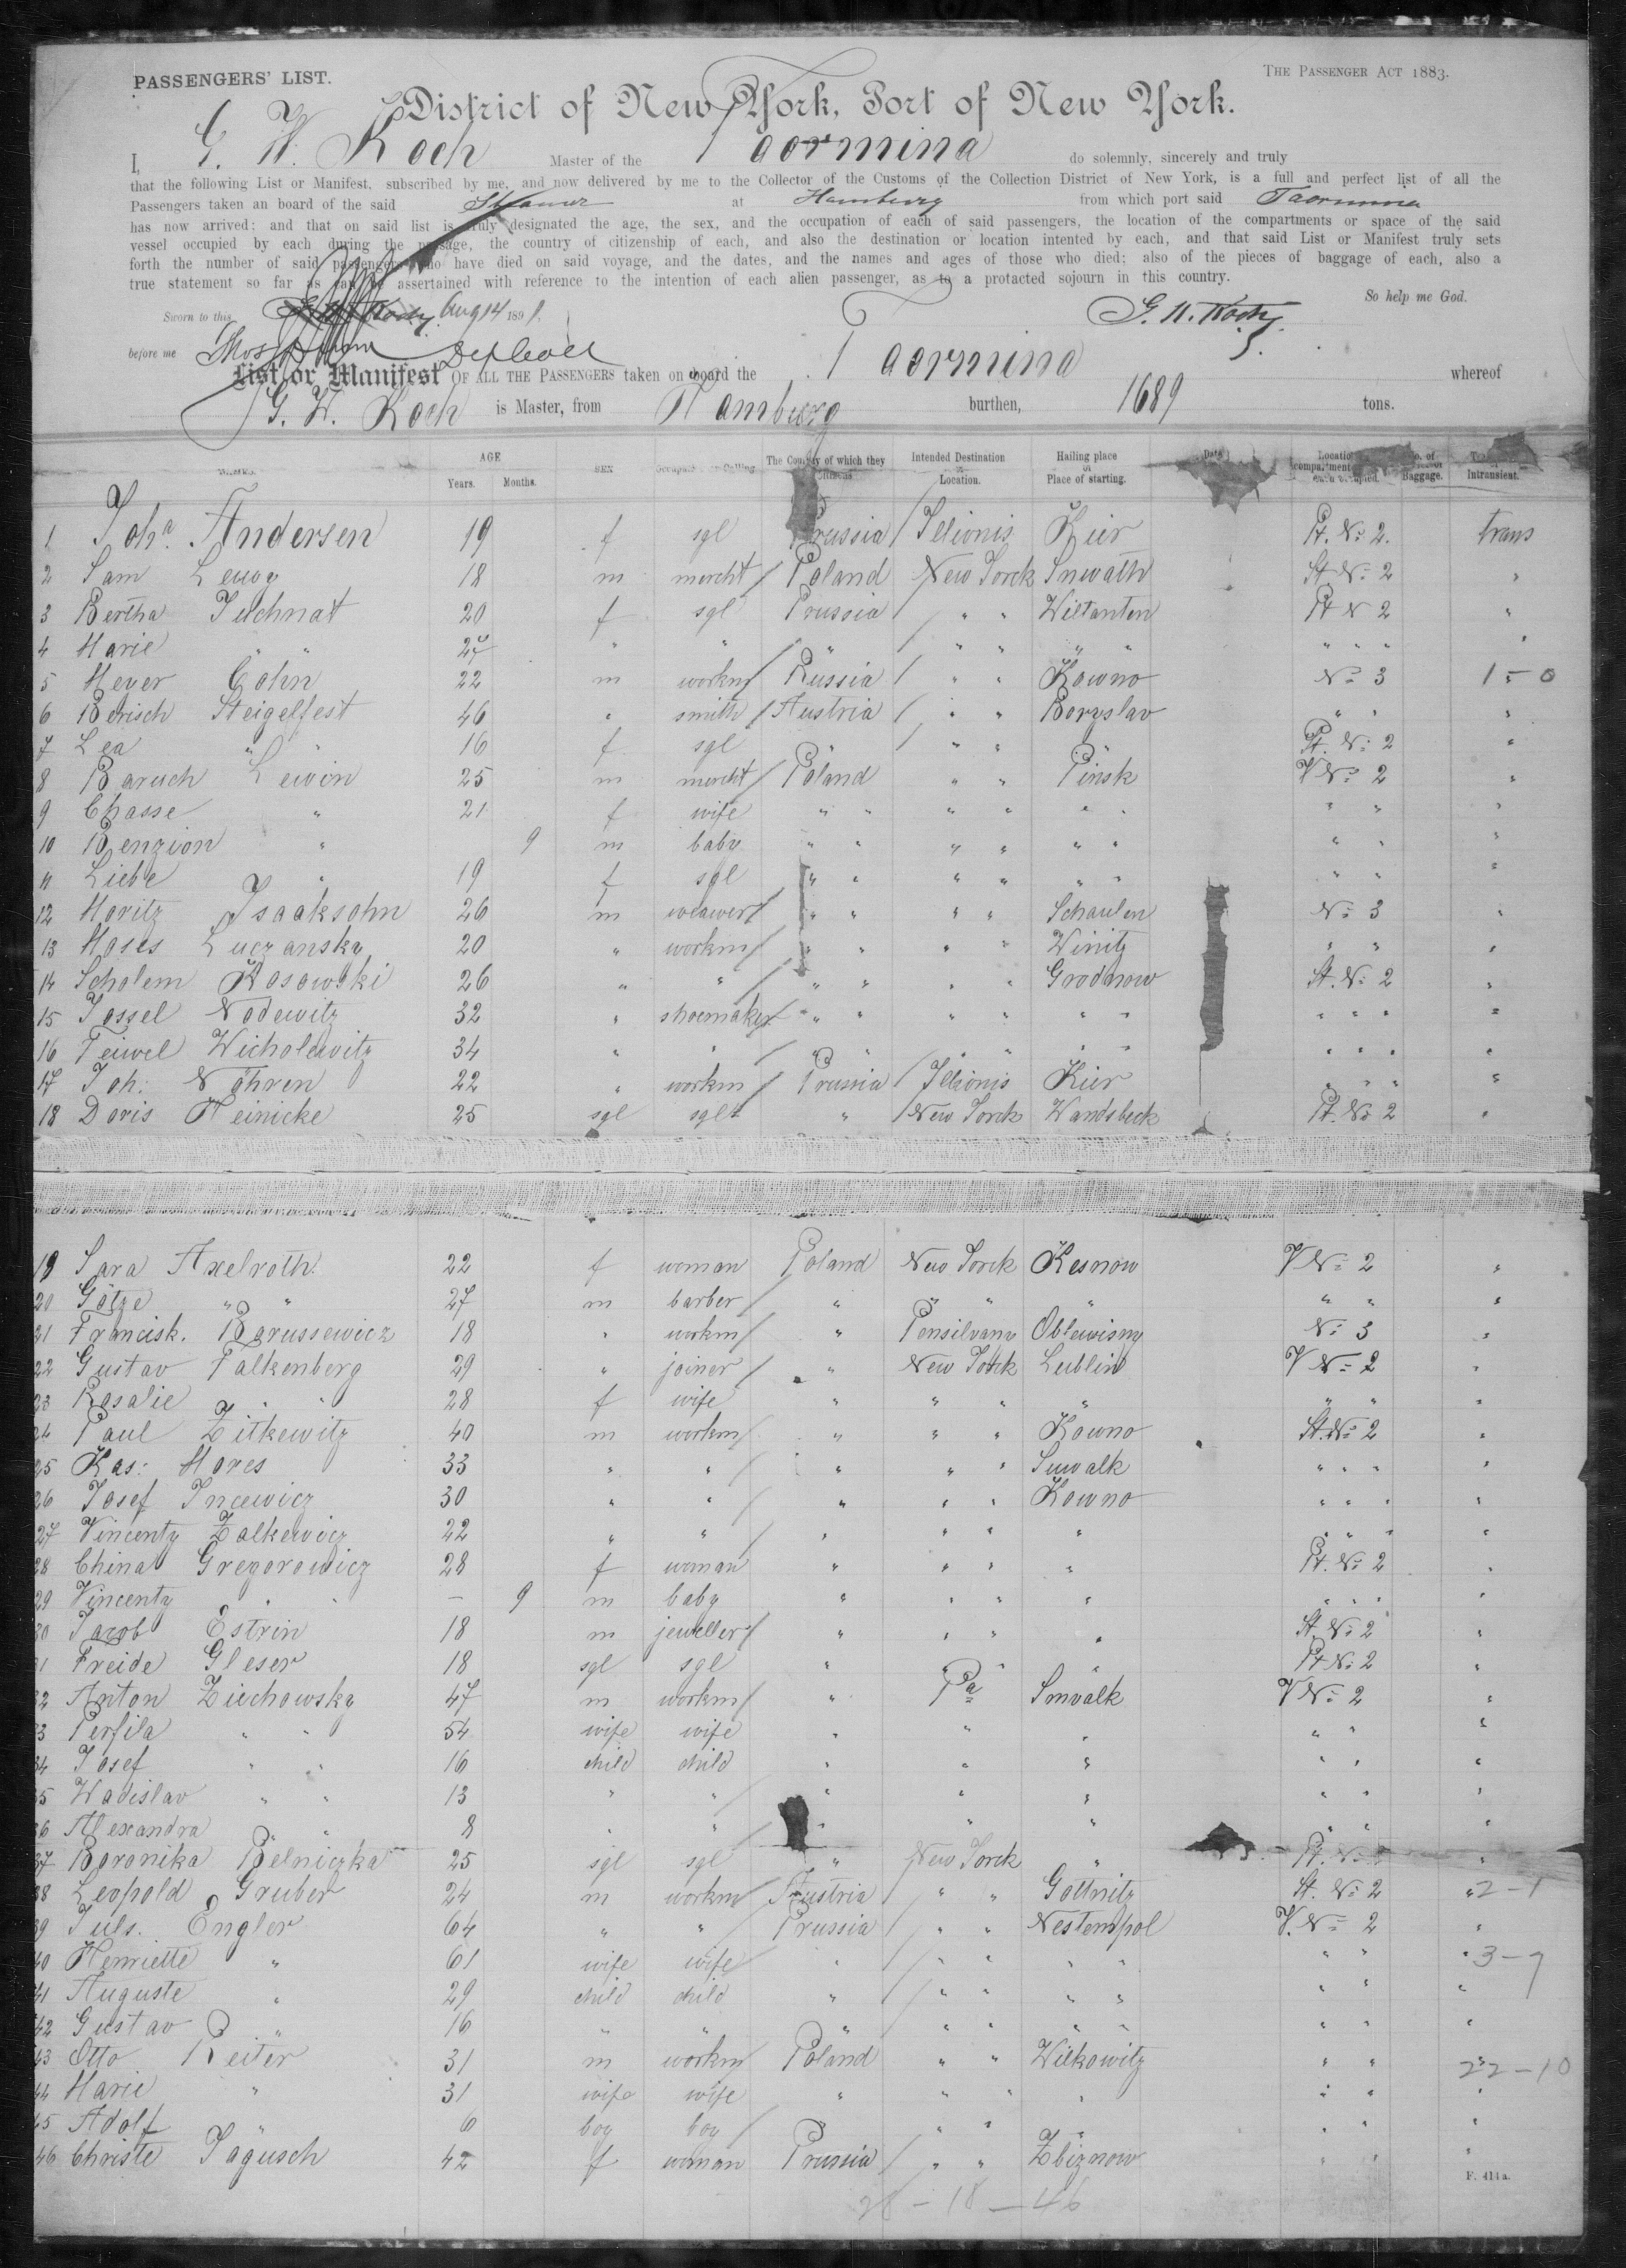 PASSENGERS' LIST.
THE PASSENGER ACT 1883.
District of New York, Port of New York.
I, G. W. Koch Master of the Taormina do solemnly, sincerely and truly
that the following List or Manifest, subscribed by me, and now delivered by me to the Collector of the Customs of the Collection District of New York, is a full and perfect list of all the
Passengers taken an board of the said Steamer at Hamburg from which port said Taormina
has now arrived; and that on said list is truly designated the age, the sex, and the occupation of each of said passengers, the location of the compartments or space of the said
vessel occupied by each during the passage, the country of citizenship of each, and also the destination or location intented by each, and that said List or Manifest truly sets
forth the number of said passengers who have died on said voyage, and the dates, and the names and ages of those who died; also of the pieces of baggage of each, also a
true statement so far as can be assertained with reference to the intention of each alien passenger, as to a protacted sojourn in this country.
So help me God.
Sworn to this Aug 14 1891. G. W. Koch
before me
List or Manifest OF ALL THE PASSENGERS taken on board the Taormina whereof
G. W. Koch is Master, from Hamburg burthen, 1689 tons.
NAMES. AGE Years. Months. SEX Occupation or Calling. The Country of which they are Citizens Intended Destination or Location. Hailing place or Place of starting. Date Location compartment each occupied. No. of Baggage. Intransient.
1 Joh.a Andersen 19 f sgl Prussia Illionis Kier Pt. No 2. trans
2 Sam Lewy 18 m mercht Poland New Yorck Suwath St No 2 "
3 Bertha Juchnat 20 f sgl Prussia " " Wiltanten Pt N 2 "
4 Marie " " " " " " " " " " " " "
5 Meyer Cohn 22 m workm Russia " " Kowno No 3 1-0
6 Berisch Steigelfest 46 " smith Austria " " Boryslav " " "
7 Lea " " 16 f sgl " " " " Pt. No 2 "
8 Baruch Lewin 25 m mercht Poland " " Pinsk V No 2 "
9 Chasse " 21 f wife " " " " " " " " "
10 Benzion " 9 m baby " " " " " " " " "
11 Liebe " 19 f sgl " " " " " " " " "
12 Moritz Isaaksohn 26 m weawer " " " " Schaulen No 3 "
13 Moses Luczansky 20 " workm " " " " Winitz " " "
14 Scholem Kosowski 26 " " " " " " Grodnow St. No 2 "
15 Jossel Nodewitz 32 " shoemaker " " " " " " " " " "
16 Feiwel Wicholewitz 34 " " " " " " " " " " " "
17 Joh: Nöhren 22 " workm Prussia Illionis Kier " " " "
18 Doris Heinicke 25 sgl sglt " New Yorck Wandsbeck Pt. No 2 "
19 Sara Axelroth 22 f woman Poland New Yorck Kesnow V No 2 "
20 Götze " " 27 m barber " " " " " " "
21 Francisk. Barussewicz 18 " workm " Pensilvany Oblewisny No 3 "
22 Gustav Falkenberg 29 " joiner " New Yorck Lublin V No 2 "
23 Rosalie " " 28 f wife " " " " " " "
24 Paul Zitkewitz 40 m workm " " " Kowno St. No 2 "
25 Kas: Mores 33 " " " " " Suwalk " " " "
26 Josef Incewicz 30 " " " " " Kowno " " " "
27 Vincenty Zalkewicz 22 " " " " " " " " " "
28 China Gregorowicz 28 f woman " " " " Pt. No 2 "
29 Vincenty " " - 9 m baby " " " " " " " "
30 Jacob Estrin 18 m jeweller " " " " St. No 2 "
31 Freide Gleser 18 sgl sgl " " " " Pt No 2 "
32 Anton Ziechowsky 47 m workm " Pa Smvalk V No 2 "
33 Perfila " " 54 wife wife " " " " " "
34 Josef " " 16 child child " " " " " "
35 Wadislav " " 13 " " " " " " " "
36 Alexandra " " 8 " " " " " " " "
37 Boronika Belniczka 25 sgl sgl " New Yorck " Pt. No "
38 Leopold Gruber 24 m workm Austria " " Gottnitz St. No 2 " 2-1
39 Juls. Engler 64 " " Prussia " " Nestempol V. No 2 "
40 Henriette " 61 wife wife " " " " " " " " 3-7
41 Auguste " 29 child child " " " " " " " "
42 Gustav " 16 " " " " " " " " " "
43 Otto Reiter 31 m workm Poland " " Wilkowitz " " " 22-10
44 Marie " 31 wife wife " " " " " " "
45 Adolf " 6 boy boy " " " " " " "
46 Christe Jagusch 42 f woman Prussia " " Zbiznow " " "
F. 414a.
28-18-46